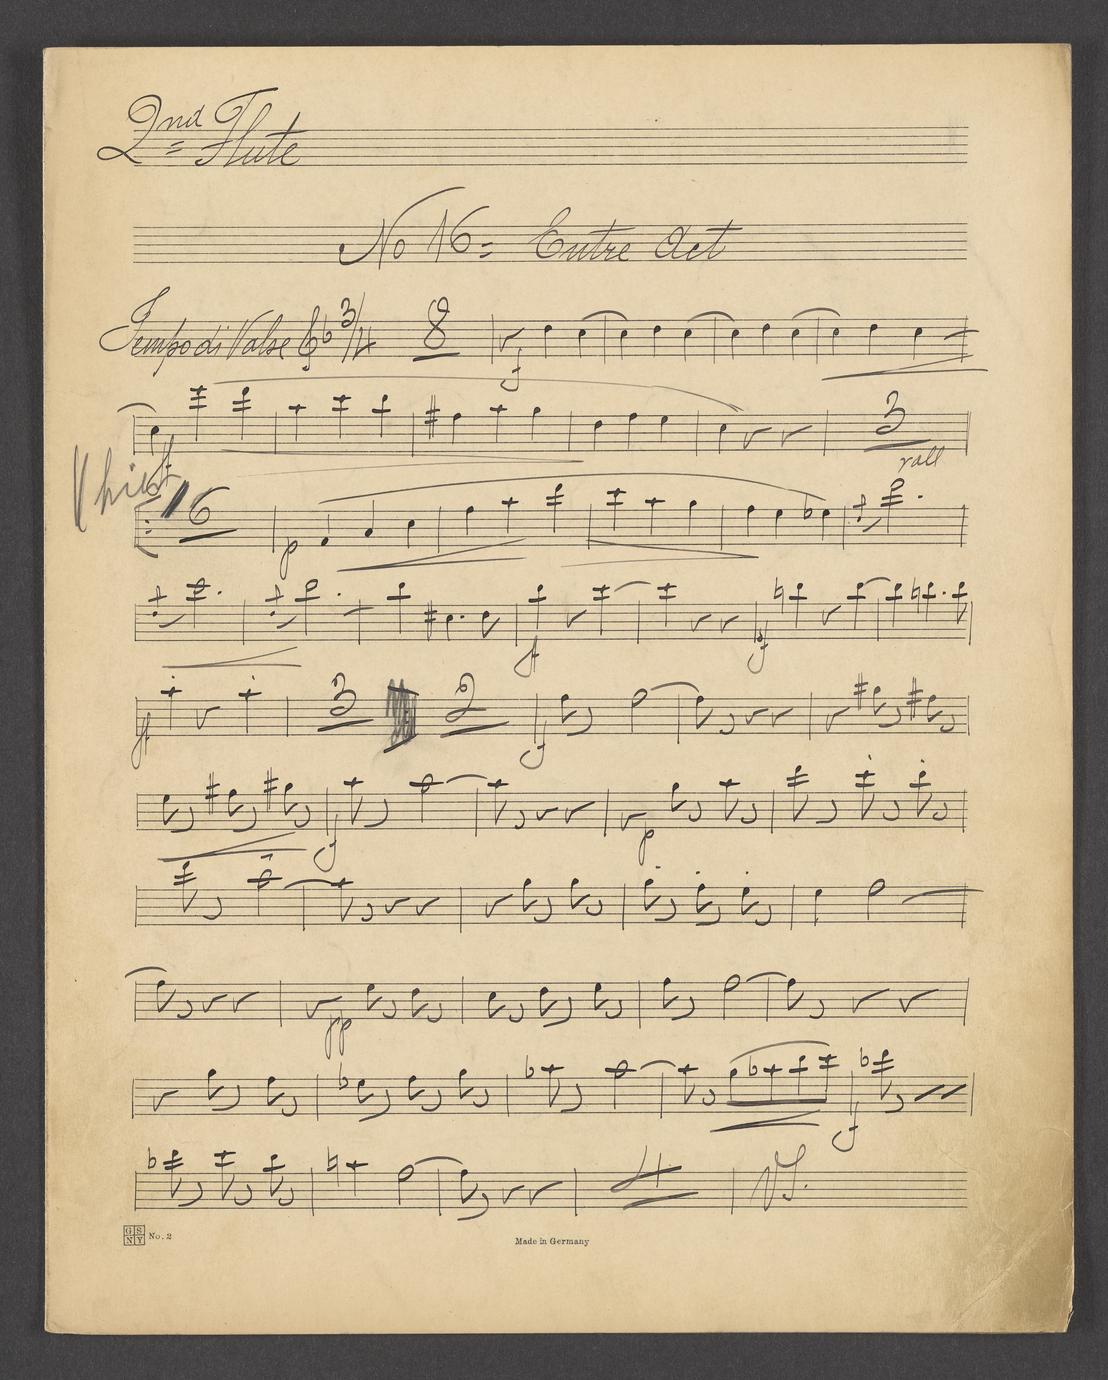 2nd Flute
No 16 = Entre Act
Tempo di Valse 3/4 8
f
3
rall
16
p
f
f
ff
3 2
f
f
p
pp
f
4 VS.
GS NY No. 2
Made in Germany